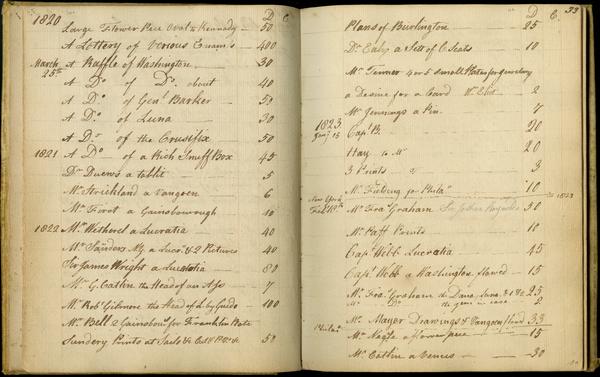 1820 D C
Large Flower Piece Oval to Kennedy — 50
A Lottery of Various Enam's — 400
March 25th A Raffle of Washington — 30
A Do of Do about 40
A Do of Genl Barker — 50
A Do of Luna — 30
A Do of the Crusifix 50
1821 A Do — of a Rich Snuff Box 45
Dr a table — 5
Mr Strickland a Vangoen 6
Mr a Gainsbourough — 10
1822 Mr Witherel a Lucratia — 40
Mr Sanders a Lucr. & 2 Pictures 40
Sir James Wright a Lucratia — 80
Mr G. Catlin the Head of an Ass — 7
Mr Robt Gilmore the Head of do by Guido — 100
Mr Bell 2 Gainsbous for Franklin Plate
Sundery Prints at Sails & 50
D C 33
Plans of Burlington — 25
Dr a Sett of C Seats — 10
Mr Turner 4 or 5 small Plates for Jewelry
a Desine for a Card — 2
Mr Jennings a Pin — 7
1823 Jany 15 Capt B. 20
Hay to Mr 20
3 Prints 3
Mr Fielding for Phila 10 1823
New York Feb Mr Fras Graham Sir Joshua Reynolds 50
Mr Prints — 10
Capt Webb Lucratia — 45
Capt Webb a Washington flawed — 15
Mr Fras Graham the Dana, Luna, & 25
Mr Do the in case — 2
Mr Mayer Drawings & Vangoen 33
Phila Mr Nagle a flower piece — 15
Mr Catlin a Venus — 30